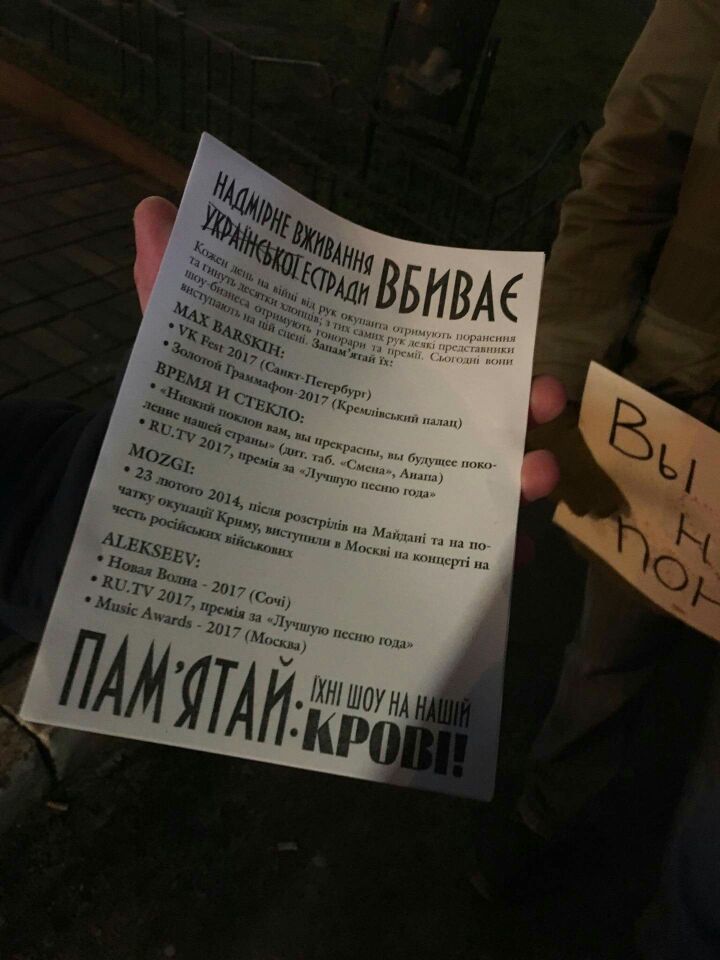 НАДМІРНЕ ВЖИВАННЯ
УКРАЇНСЬКОЇ ЕСТРАДИ
ВБИВАЄ
Кожен день на війні від рук окупанта отримують поранення
та гинуть десятки хлопців; з тих самих рук деякі представники
шоу-бизнеса отримують гонорари та премії. Сьогодні вони
виступають на цій сцені. Запам'ятай їх:
MAX BARSKIH:
• VK Fest 2017 (Санкт-Петербург)
• Золотой Граммафон-2017 (Кремлівський палац)
ВРЕМЯ И СТЕКЛО:
• «Низкий поклон вам, вы прекрасны, вы будущее поко-
ление нашей страны» (дит. таб. «Смена», Анапа)
• RU.TV 2017, премія за «Лучшую песню года»
MOZGI:
• 23 лютого 2014, після розстрілів на Майдані та на по-
чатку окупації Криму, виступили в Москві на концерті на
честь російських військових
ALEKSEEV:
• Новая Волна - 2017 (Сочі)
• RU.TV 2017, премія за «Лучшую песню года»
• Music Awards - 2017 (Москва)
ПАМ'ЯТАЙ:
ЇХНІ ШОУ НА НАШІЙ
КРОВІ!
Вы